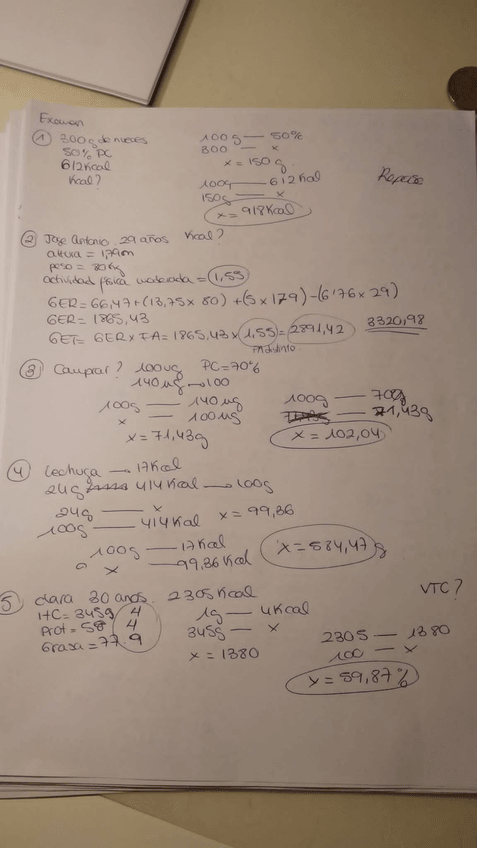 Examen
① 300g de nueces
50% PC
612Kcal
Kcal?
100g — 50%
300 — x
x = 150 g
100g — 612 Kcal
150g — x
x = 918Kcal
Repaso
② Jose Antonio. 29 años Kcal?
altura = 1,79m
peso = 80Kg
actividad física moderada = 1,55
GER = 66,47 + (13,75 x 80) + (5 x 179) - (6'76 x 29)
GER = 1865,43
GET = GER x FA = 1865.43 x 1,55 = 2891,42 3320,98
FA distinto
③ Comprar? 100ug PC=70%
140 ug → 100
100g — 140 ug
x — 100ug
x = 71,43g
100g — 70g
— 71,43g
x = 102,04
④ Lechuga → 17Kcal
24g 414Kcal → 100g
24g — x
100g — 414Kcal
x = 99,36
100g — 17Kcal
x — 99.36Kcal
x = 584,47 g
⑤ Clara 30 anos. 2305Kcal VTC?
HC = 345g 4
Prot = 58 4
Grasa = 77 9
1g — 4Kcal
345g — x
x = 1380
2305 — 1380
100 — x
x = 59,87%